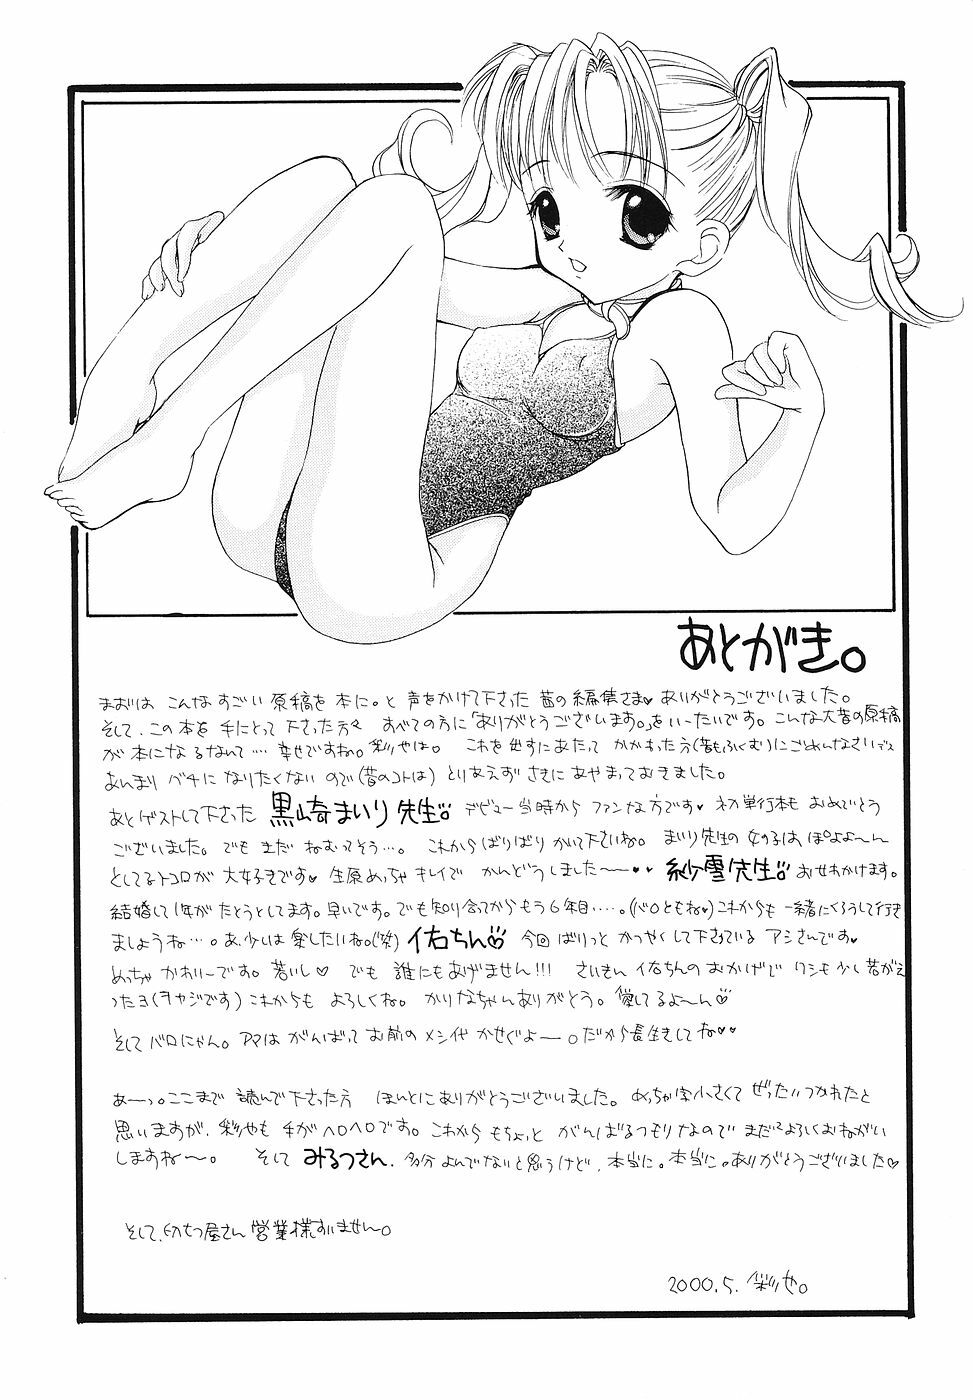 あとがき。
まずは こんなすごい 原稿を 本に。と 声をかけて下さった 茜の編集さま♥ ありがとうございました。
そして、この本を 手にとって 下さった方々 すべての方に「ありがとうございます。」をいーたいです。こんな大昔の原稿
が 本になるなんて… 幸せですね。彩やは。 これを 出すにあたって かかわった方(昔もふくむ)にごめんなさいデス
あんまり バチに なりたくない ので(昔のコトは) とりあえず さきに あやまっておきました。
あとゲストして下さった 黒崎まいり先生。 デビュー当時から ファンな方です♥ ネカ単行本も おめでとう
ございました。でも まだ ねむってそう…。 これから ばりばり かいて下さいね。 まいり先生の 女の子は ぽよよ〜ん
としてるトコロが 大好きです♥ 生原めっちゃ キレイで かんどうしました〜♥♥ 紗雪先生。 おせわかけます。
結婚して1年が たとうとしてます。早いです。でも知り合てからもう6年目……。(バロともね♥)これからも 一緒にくろうして行き
ましょうね…。あ、少しは 楽したいね。(笑) 佑ちん 今回 ばりっと かつやくして下さっている アシさんです♥
めっちゃ かわいーです。若いし♡ でも 誰にもあげません!!! さいきん 佑ちんの おかげで ワシも少し 若がえ
ったヨ(ヲヤジです) これからも よろしくね。 かりなちゃんありがとう。愛してるよ〜ん♡
そして バロにゃん。 アマは がんばって お前の メシ代 かせぐよー。だから長生きしてね♥♥
あーっ。ここまで 読んで下さった方 ほんとにありがとうございました。めっちゃ字小さくて ぜったいつかれたと
思いますが、彩やも 手がヘロヘロです。これから もちょっと がんばるつもりなので まだまだよろしくおねがい
しますね〜。 そして みるつさん、多分よんでないと思うけど、本当に。本当に。ありがとうございました♡
そして、屋さん 営業様すいません。
2000.5. 彩や。